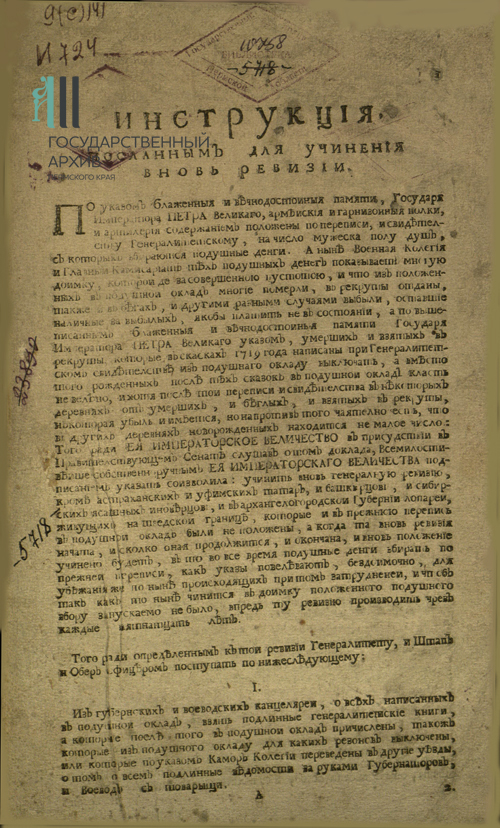 9(с)141
И 724
10758
5718
ИНСТРУКЦІЯ,
ПОСЛАННЫМЪ ДЛЯ УЧИНЕНІЯ
ВНОВЬ РЕВИЗІИ.
ГОСУДАРСТВЕННЫЙ
АРХИВ
ПЕРМСКОГО КРАЯ
ПО указомъ блаженныя и вѣчнодостойныя памяти, Государя
Императора ПЕТРА Великаго, армѣйскія и гарнизонныя полки,
и артилерія содержаніемъ положены по переписи, и свидѣтел-
ству Генералитетскому, на число мужеска полу душъ,
съ которыхъ зберяются подушные денги. А нынѣ Военная Колегія
и Главной Камисаріатъ тѣхъ подушныхъ денегъ показываетъ многую
доимку, которой де за совершенною пустотою, и что изъ положен-
ныхъ въ подушной окладъ многіе померли, въ рекруты отданы,
также и въ бѣгахъ, и другими разными случаями выбыли, оставшіе
наличные за выбылыхъ, якобы платить не въ состояніи, а по выше-
писаннымъ блаженныя и вѣчнодостойныя памяти Государя
Императора ПЕТРА Великаго указомъ, умершихъ и взятыхъ въ
рекруты, которые, въ скаскахъ 1719 года написаны при Генералитет-
скомъ свидѣтелствѣ изъ подушнаго окладу выключать, а вмѣсто
того рожденныхъ послѣ тѣхъ сказокъ въ подушной окладъ класть
не велѣно, и хотя послѣ той переписи и свидѣтелства въ нѣкоторыхъ
деревняхъ отъ умершихъ, и бѣглыхъ, и взятыхъ въ рекруты,
нѣкоторая убыль и имѣется, но напротивъ того чаятелно есть, что
въ другихъ деревняхъ новорожденныхъ находится не малое число:
Того ради ЕЯ ИМПЕРАТОРСКОЕ ВЕЛИЧЕСТВО въ присудствіи въ
Правителствующемъ Сенатѣ слушавъ о томъ доклада, Всемилости-
вѣйше собственноручнымъ ЕЯ ИМПЕРАТОРСКАГО ВЕЛИЧЕСТВА под-
писаніемъ указать соизволила: учинить вновь генералную ревизію,
кромѣ астраханскихъ и уфимскихъ татаръ, и башкирцовъ, и сибир-
скихъ ясашныхъ иновѣрцовъ; и въ архангелогородской Губерніи лопарей,
живущихъ на шведской границѣ, которые и въ прежнюю перепись
въ подушной окладъ были не положены, а когда та вновь ревизія
начата, и сколко оная продолжится, и окончана, и вновь положеніе
учинено будетъ, въ то во все время подушные денги збирать по
прежней переписи, какъ указы повелѣваютъ, бездоимочно, для
убѣжанія же по нынѣ происходящихъ притомъ затрудненей, и чтобъ
такъ какъ то нынѣ чинится въ доимку положеннаго подушного
збору запускаемо не было, впредь ту ревизію производить чрезъ
каждые пятнатцать лѣтъ.
Того ради опредѣленнымъ къ той ревизіи Генералитету, и Штапъ
и Оберъ офицеромъ поступать по нижеслѣдующему;
I.
Изъ губернскихъ и воеводскихъ канцелярей, о всѣхъ написанныхъ
въ подушной окладъ, взять подлинные генералитетскіе книги,
а которые послѣ того въ подушной окладъ причислены, такожъ
которые изъ подушного окладу для какихъ резонсвъ выключены,
или которые по указомъ Каморъ Колегіи переведены въ другіе уѣзды,
о томъ о всемъ подлинные вѣдомости за руками Губернаторовъ,
и Воеводъ съ товарыщи.
А
2.
5718